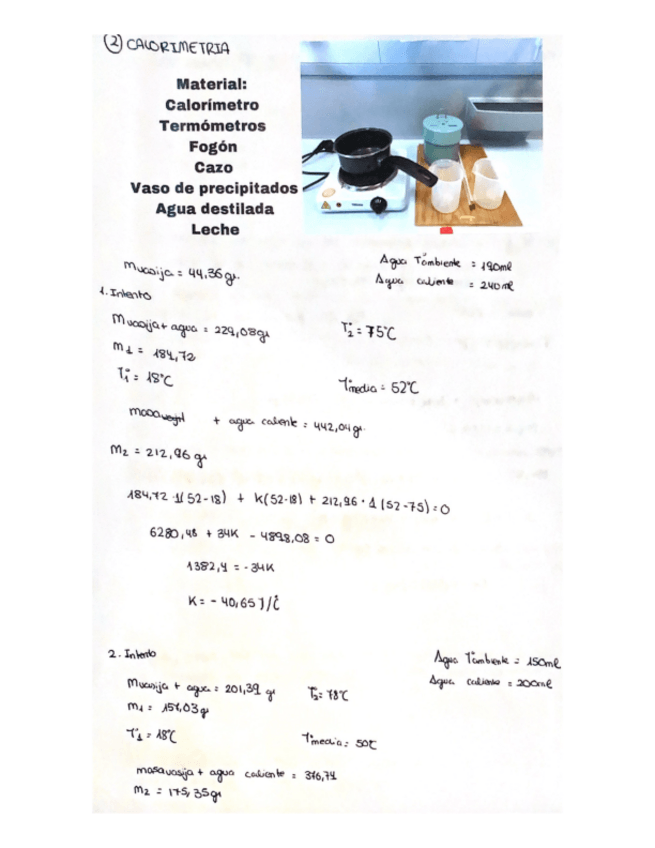 ② CALORIMETRIA
Material:
Calorímetro
Termómetros
Fogón
Cazo
Vaso de precipitados
Agua destilada
Leche
Mvasija = 44,36 gr.
Agua Tªmbiente = 190ml
Agua caliente = 240 ml
1. Intento
Mvasija + agua = 229,08 gr
T₂° = 75°C
m₁ = 184,72
T₁° = 18°C
T°media = 52°C
masa + agua caliente = 442,04 gr.
m₂ = 212,96 gr
184,72 · 1(52-18) + K(52-18) + 212,96 · 1 (52-75) = 0
6280,48 + 34K - 4898,08 = 0
1382,4 = -34K
K = - 40,65 J/°C
2. Intento
Agua Tªmbiente = 150ml
Agua caliente = 200ml
Mvasija + agua = 201,39 gr
T₂° = 78°C
m₁ = 157,03 gr
T₁° = 18°C
T°media = 50°C
masavasija + agua caliente = 376,74
m₂ = 175,35 gr